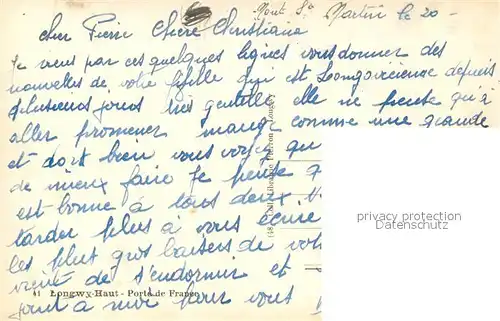 Mont St Martin le 20 -
Cher Pierre Chère Christiane
Je viens par ces quelques lignes vous donner des
nouvelles de votre fifille qui est Longovicienne depuis
plusieurs jours très gentille elle ne pense qu'à
aller promener mange comme une grande
et dort bien vous voyez qu
de mieux faire je pense q
est bonne à tous deux.
tarder plus à vous écrire
les plus gros baisers de vot
vient de s'endormir et
joint à moi pour vous
41 Longwy-Haut - Porte de France
privacy protection
Datenschutz